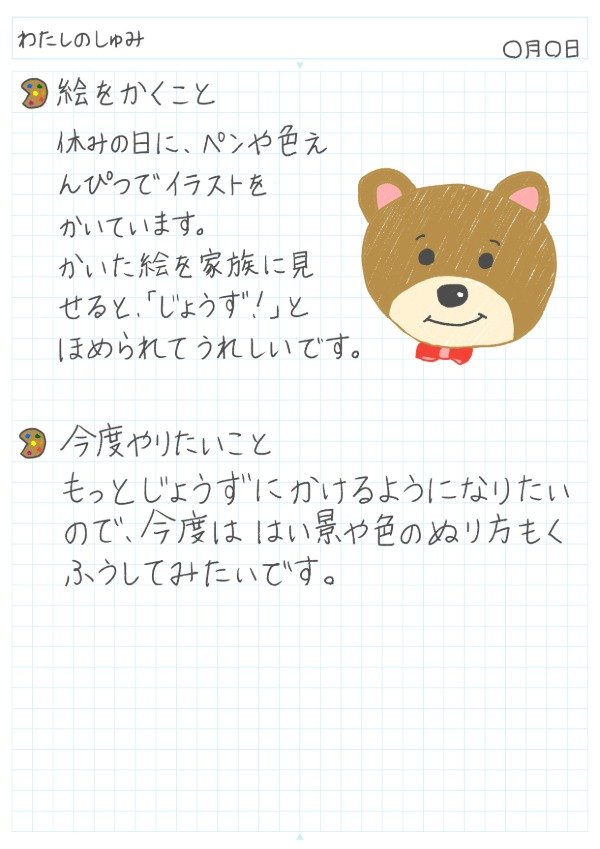 わたしのしゅみ
○月○日
絵をかくこと
休みの日に、ペンや色え
んぴつでイラストを
かいています。
かいた絵を家族に見
せると、「じょうず!」と
ほめられてうれしいです。
今度やりたいこと
もっとじょうずにかけるようになりたい
ので、今度は はい景や色のぬり方もく
ふうしてみたいです。